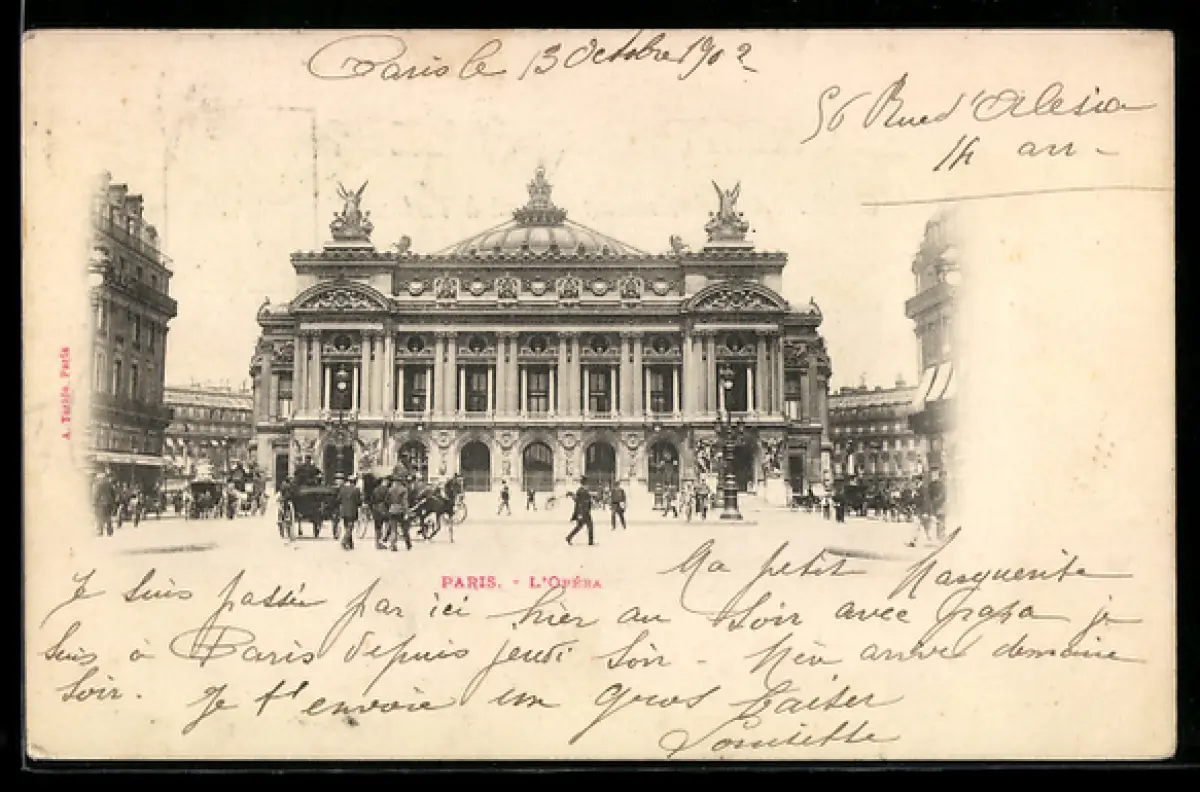 Paris le 13 Octobre 1902
56 Rue d'Alesia
14 arr
A. Taride, Paris
PARIS. - L'OPÉRA
Ma petite Marguerite
Je suis passée par ici hier au soir avec papa je
suis à Paris depuis jeudi soir - arrive demain
soir. Je t'envoie un gros baiser
Louisette